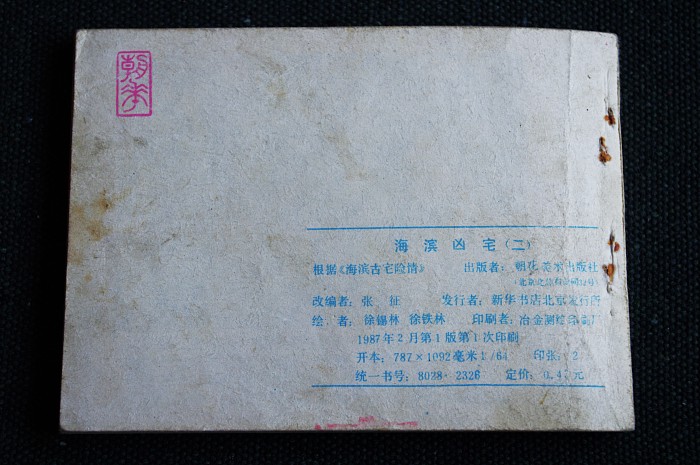 朝花
海滨凶宅(二)
根据《海滨古宅险情》 出版者：朝花美术出版社
改编者：张 征 发行者：新华书店北京发行所
绘 者：徐锡林 徐铁林 印刷者：冶金测绘印刷厂
1987年2月第1版第1次印刷
开本：787×1092毫米1/64 印张：2
统一书号：8028·2326 定价：0.4 元